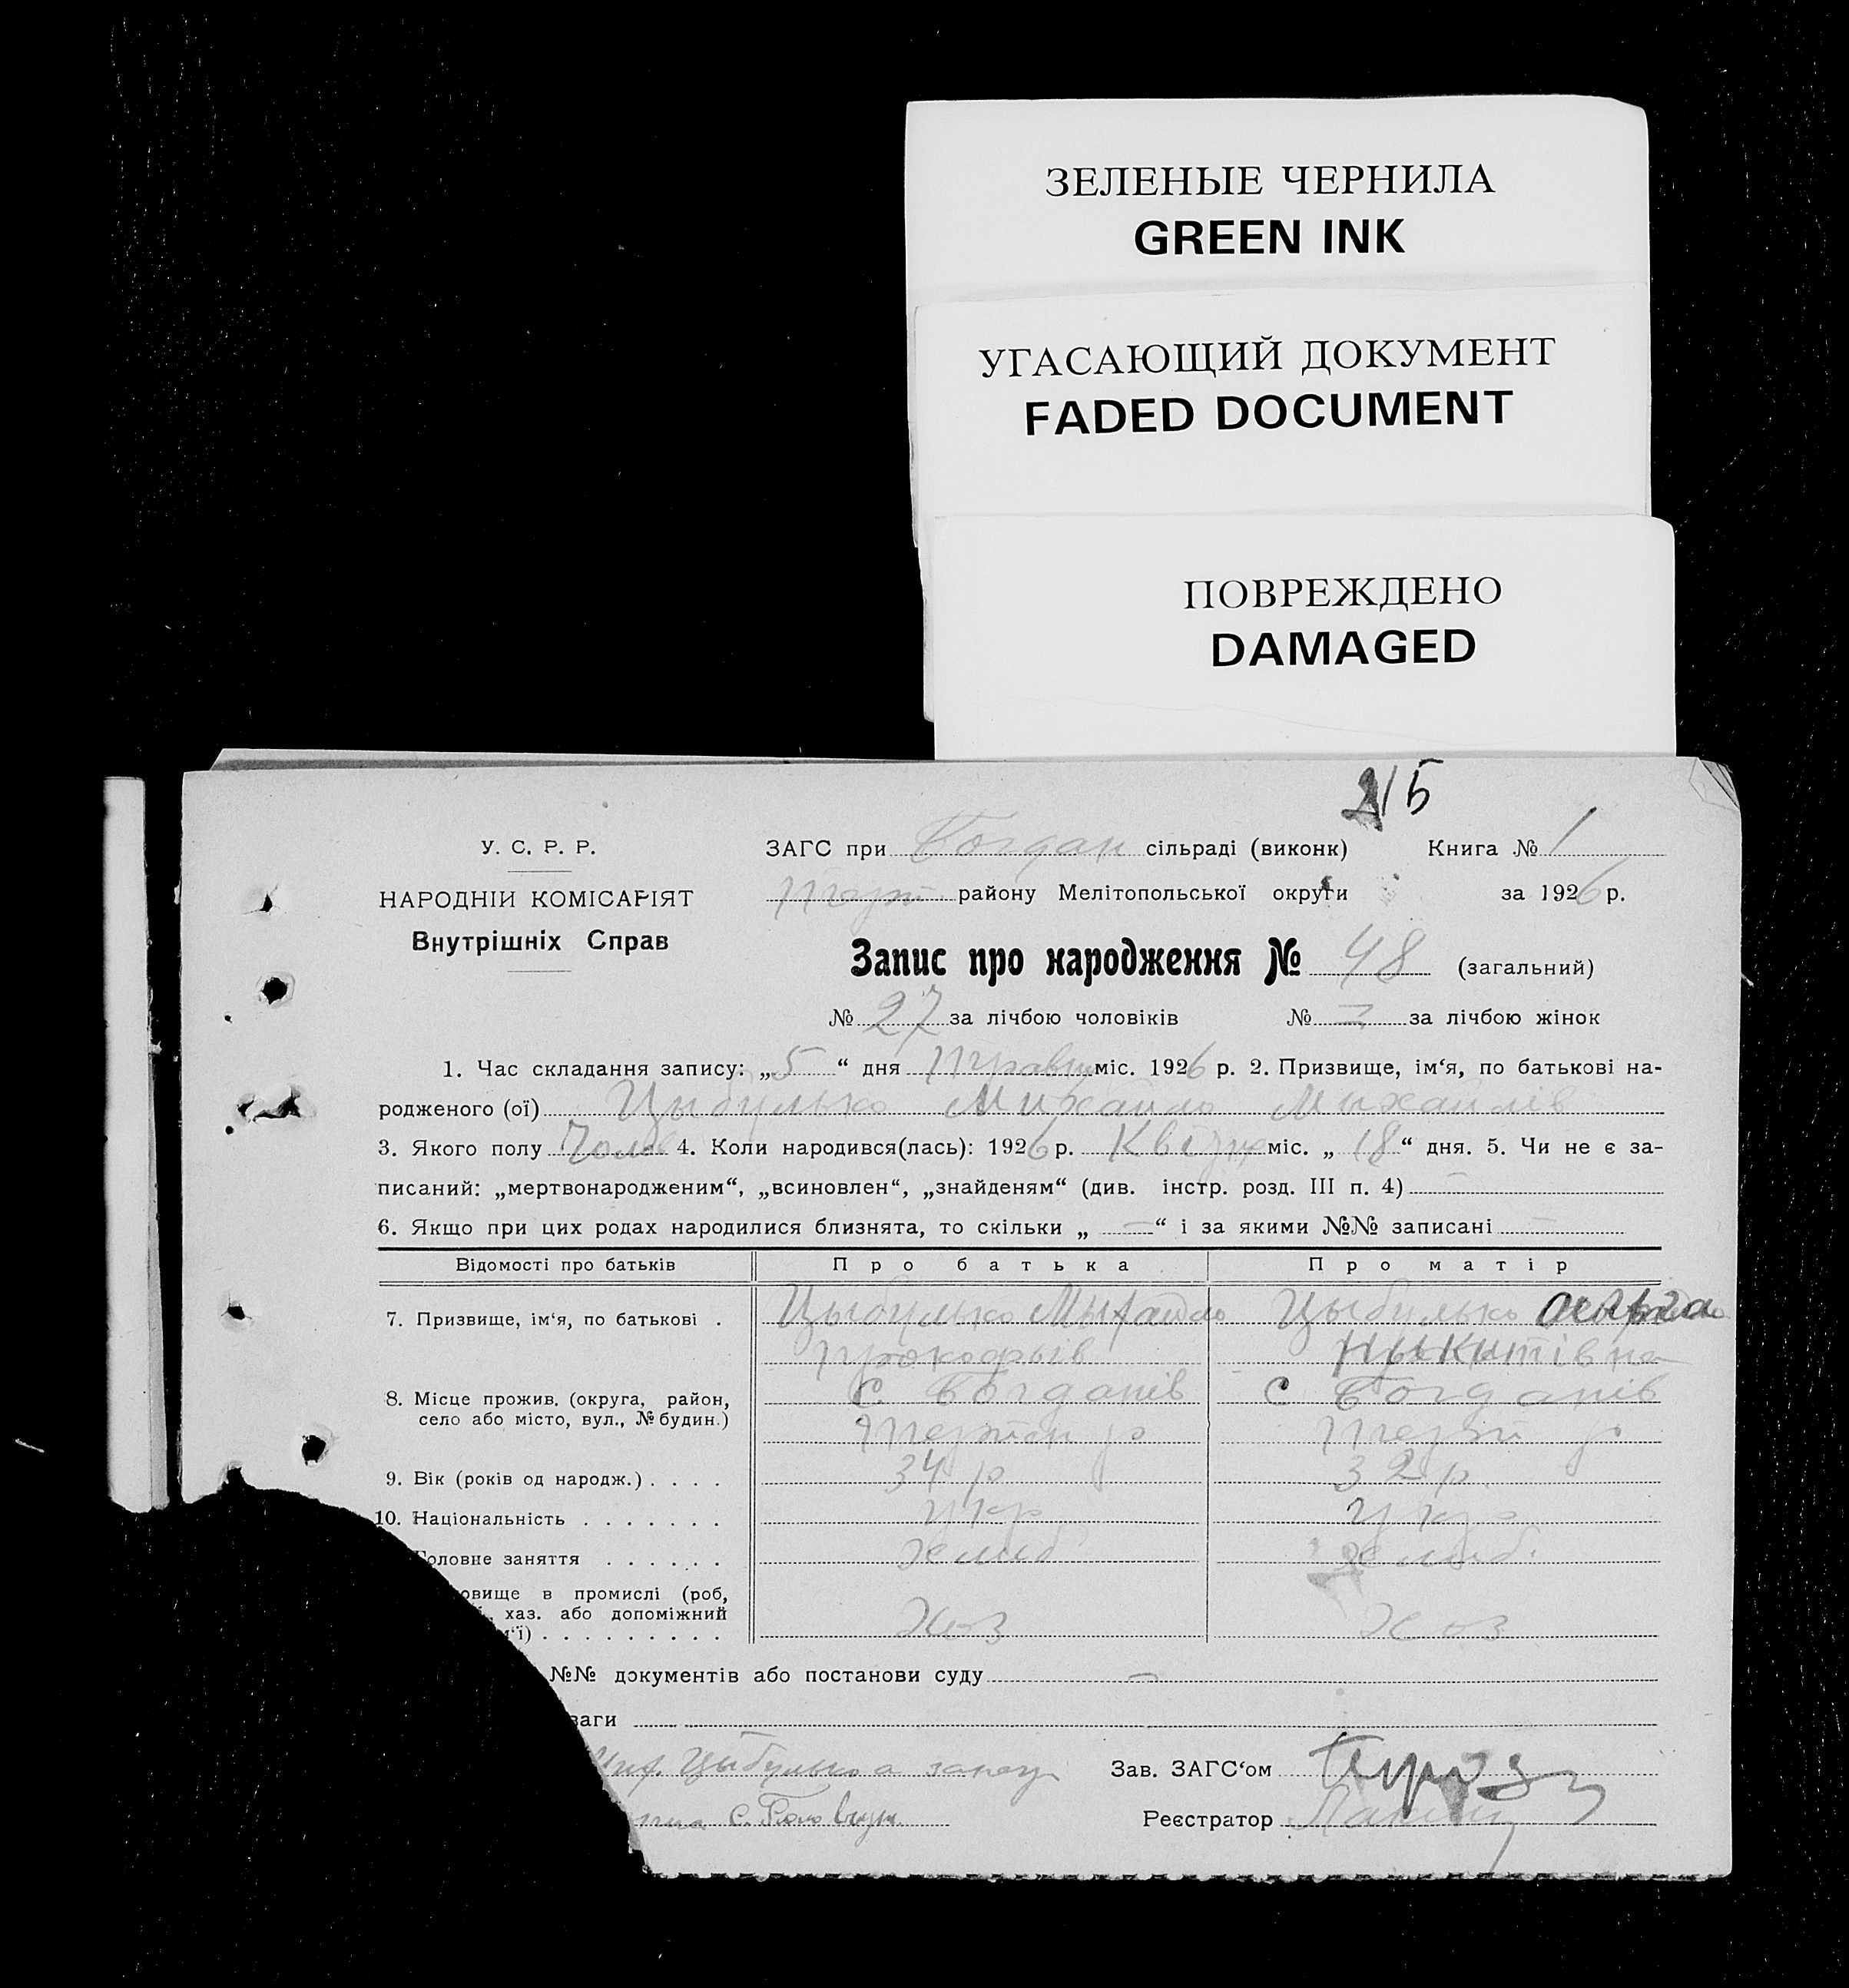 ЗЕЛЕНЫЕ ЧЕРНИЛА
GREEN INK
УГАСАЮЩИЙ ДОКУМЕНТ
FADED DOCUMENT
ПОВРЕЖДЕНО
DAMAGED
215
У. С. Р. Р.
НАРОДНІИ КОМІСАРІЯТ
Внутрішніх Справ
ЗАГС при Богдан сільраді (виконк) Книга № 1
району Мелітопольської округи за 1926 р.
Запис про народження № 48 (загальний)
№ 27 за лічбою чоловіків № — за лічбою жінок
1. Час складання запису: „5“ дня Травня міс. 1926 р. 2. Призвище, ім‘я, по батькові на-
родженого (ої) Цыбулько Михайло Михайлів
3. Якого полу Чолов 4. Коли народився(лась): 1926 р. Квітня міс. „18“ дня. 5. Чи не є за-
писаний: „мертвонародженим“, „всиновлен“, „знайденям“ (див. інстр. розд. III п. 4) —
6. Якщо при цих родах народилися близнята, то скільки „ — “ і за якими №№ записані —
Відомості про батьків Про батька Про матір
7. Призвище, ім‘я, по батькові . Цыбулько Мыхайло Цыбулько
Прокофьів Ныкитівна
8. Місце прожив. (округа, район, С Богданів С Богданів
село або місто, вул., № будин.)
9. Вік (років од народж.) . . . . 34 р 32 р.
10. Національність . . . . . . . укр укр
Головне заняття . . . . . . Хліб Хліб.
овище в промислі (роб,
хаз. або допоміжний
м‘ї) . . . . . . . . . Хоз Хоз
№№ документів або постанови суду —
ваги
Цыбулько а Зав. ЗАГС‘ом
Реєстратор